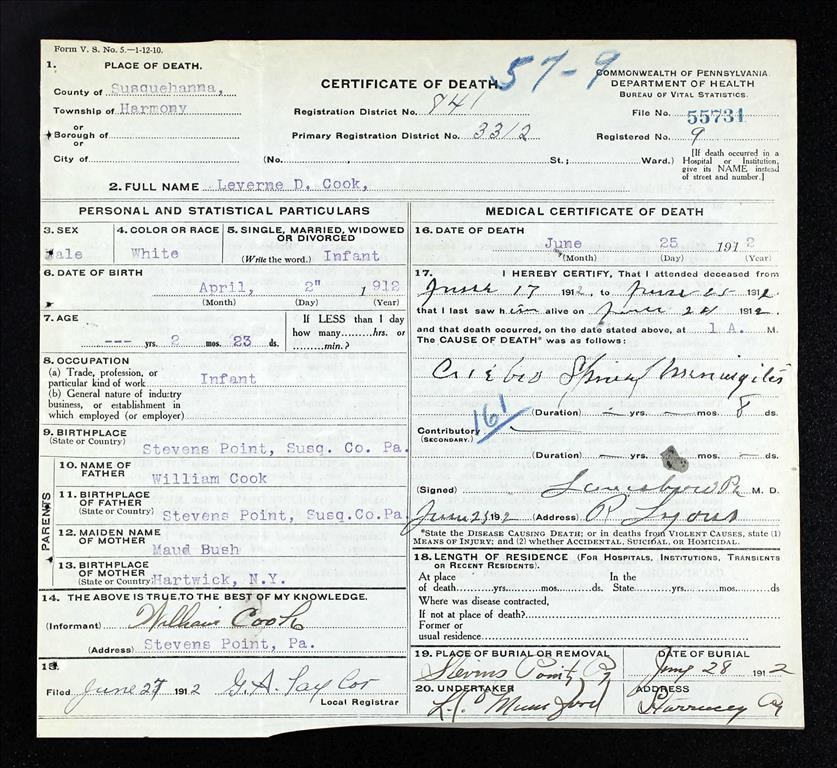 Form V. S. No. 5.—1-12-10.
1. PLACE OF DEATH.
County of Susquehanna,
Township of Harmony
or
Borough of
or
City of
CERTIFICATE OF DEATH.
57-9
Registration District No. 841
Primary Registration District No. 3312
(No. , St.; Ward.)
COMMONWEALTH OF PENNSYLVANIA
DEPARTMENT OF HEALTH
BUREAU OF VITAL STATISTICS.
File No. 55731
Registered No. 9
[If death occurred in a Hospital or Institution, give its NAME instead of street and number.]
2. FULL NAME Leverne D. Cook,
PERSONAL AND STATISTICAL PARTICULARS
3. SEX
Male
4. COLOR OR RACE
White
5. SINGLE, MARRIED, WIDOWED
OR DIVORCED
(Write the word.) Infant
6. DATE OF BIRTH
April, 2" 1912
(Month) (Day) (Year)
7. AGE
--- yrs. 2 mos. 23 ds.
If LESS than 1 day
how many.........hrs. or
.........min.?
8. OCCUPATION
(a) Trade, profession, or
particular kind of work Infant
(b) General nature of industry
business, or establishment in
which employed (or employer)
9. BIRTHPLACE
(State or Country)
Stevens Point, Susq. Co. Pa.
PARENTS
10. NAME OF
FATHER
William Cook
11. BIRTHPLACE
OF FATHER
(State or Country)
Stevens Point, Susq.Co.Pa.
12. MAIDEN NAME
OF MOTHER
Maud Bush
13. BIRTHPLACE
OF MOTHER
(State or Country)
Hartwick, N.Y.
14. THE ABOVE IS TRUE TO THE BEST OF MY KNOWLEDGE.
(Informant) William Cook
(Address) Stevens Point, Pa.
15.
Filed June 27 1912 G. A. Taylor
Local Registrar
MEDICAL CERTIFICATE OF DEATH
16. DATE OF DEATH
June 25 1912
(Month) (Day) (Year)
17. I HEREBY CERTIFY, That I attended deceased from
June 17 1912, to June 25 1912,
that I last saw him alive on June 24 1912,
and that death occurred, on the date stated above, at 1 A. M.
The CAUSE OF DEATH* was as follows:
Cerebro Spinal Meningitis
161
(Duration) — yrs. — mos. 8 ds.
Contributory
(SECONDARY.)
(Duration) — yrs. mos. — ds.
(Signed) M. D.
June 25 1912 (Address)
*State the DISEASE CAUSING DEATH; or in deaths from VIOLENT CAUSES, state (1)
MEANS OF INJURY; and (2) whether ACCIDENTAL, SUICIDAL, OR HOMICIDAL.
18. LENGTH OF RESIDENCE (FOR HOSPITALS, INSTITUTIONS, TRANSIENTS
OR RECENT RESIDENTS).
At place
of death.........yrs.........mos.........ds.
In the
State.........yrs.........mos.........ds.
Where was disease contracted,
If not at place of death?
Former or
usual residence
19. PLACE OF BURIAL OR REMOVAL
Stevens Point, Pa
DATE OF BURIAL
June 28 1912
20. UNDERTAKER
Mumford
ADDRESS
Starrucca Pa